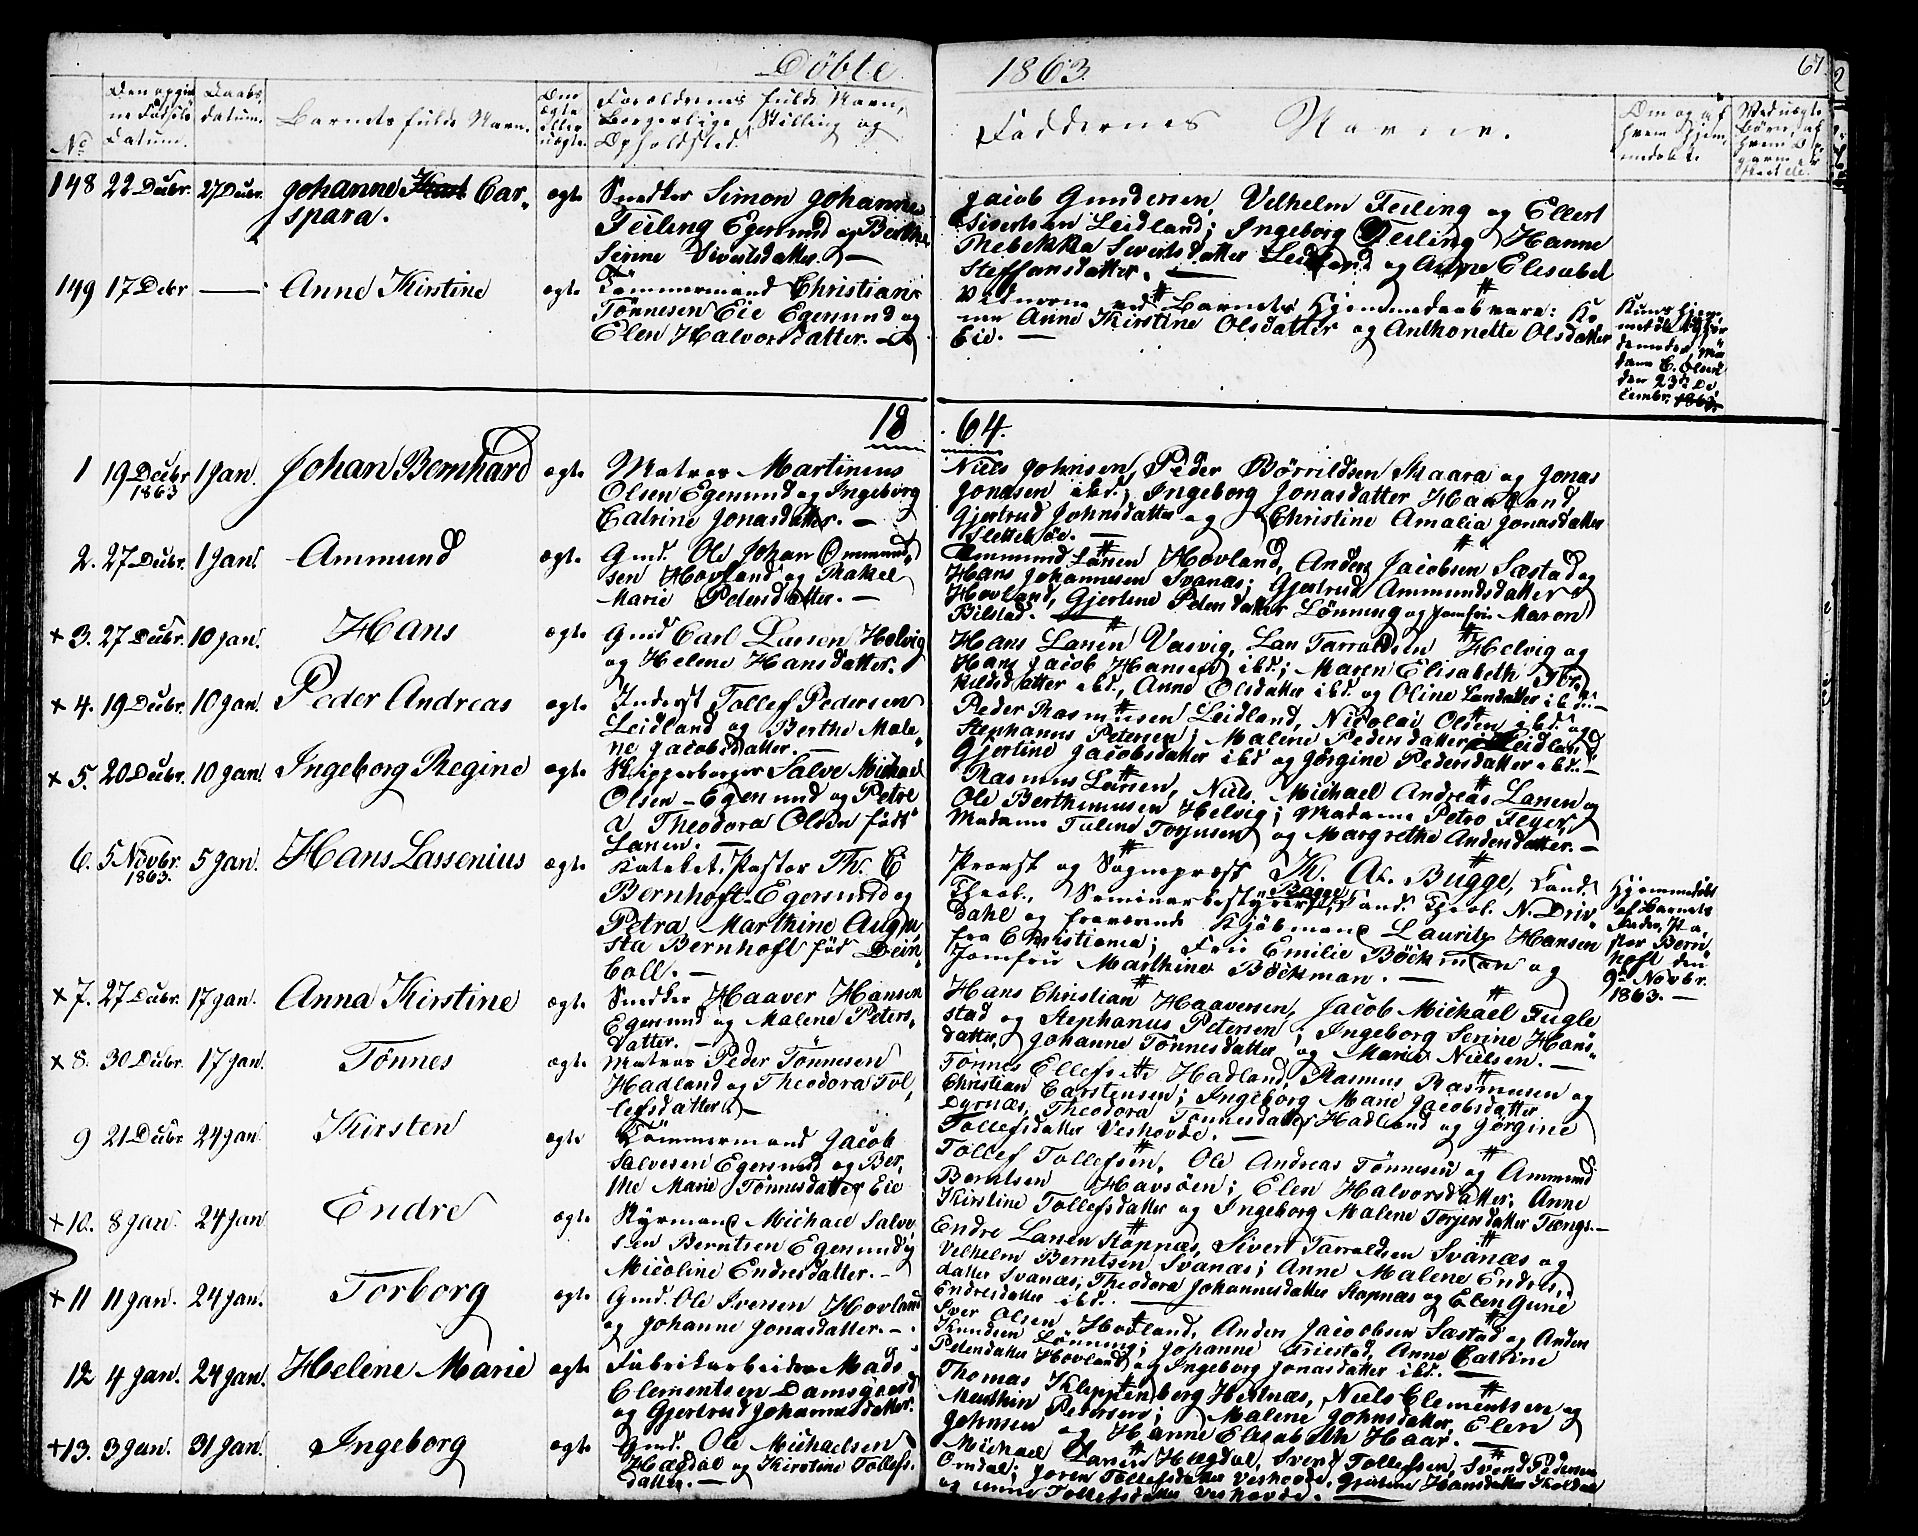 Döbte 1863. 67
No
Den opgivne Fødsels Datum.
Daabs datum.
Barnets fulde Navn.
Om ægte eller uægte.
Forældrenes fulde Navn, Borgerlige Stilling og Opholdsted.
Faddernes Navne.
Om og af hvem hjemmedøbt
148 22 Decbr. 27 Decbr. Johanne Cas-
spara.
ægte
Snedker Simon Johannes
Feiling Egersund og Berthe
Serine Sivertsdatter. —
Jacob Gundersen, Vilhelm Feiling og Ellert
Sivertsen Leidland; Ingeborg Feiling, Hanne
Rebekka Sivertsdatter Leidland og Anne Elisabet
Steffansdatter. —
149 17 Debr — Anne Kirstine
ægte
Tömmermand Christian
Tönnesen Eie Egersund og
Elen Halvorsdatter. —
Vidnerne ved Barnets Hjemmedaab vare: Ko-
ne Anne Kirstine Olsdatter og Anthonette Olsdatter
Eie. —
Kuns hjem-
medöbt af Jor-
demoder, Ma-
dame E. Olsen
den 23de De-
cembr. 1863.
1864.
1 19 Decbr 1863 1 Jan. Johan Bernhard
ægte
Matros Martinius
Olsen Egersund og Ingeborg
Catrine Jonasdatter. —
Niels Johnsen, Peder Börrildsen Skaara og Jonas
Jonassen ibd.; Ingeborg Jonasdatter Haaland,
Gjertrud Johnsdatter og Christine Amalia Jonasdatter
Sletteböe. —
2. 27 Decbr. 1 Jan. Ammund
ægte
Gmd. Ole Johan Ommund-
sen Hovland og Rakel
Marie Petersdatter. —
Ommund Larsen Hovland, Anders Jacobsen Sæstad og
Hans Johannesen Svanæs; Gjertrud Ammundsdatter
Hovland, Gjertine Petersdatter Lönning og Jomfru Maren
Bilstad. —
+ 3. 27 Decbr. 10 Jan. Hans
ægte
Gmd Carl Larsen Helvig
og Helene Hansdatter.
Hans Larsen Vasvig, Lars Tarraldsen Helvig og
Hans Jacob Hansen ibd.; Maren Elisabeth Tor-
kildsdatter ibd., Anne Olsdatter ibd. og Oline Larsdatter ibd. —
+ 4. 19 Decbr. 10 Jan. Peder Andreas
ægte
Inderst Tollef Pedersen
Leidland og Berthe Male-
ne Jacobsdatter. —
Peder Rasmusen Leidland, Nicolai Olsen ibd. og
Stephanus Petersen; Malene Pedersdatter Leidland
Gjertine Jacobsdatter ibd og Jörgine Pedersdatter ibd. —
+ 5. 20 Decbr. 10 Jan. Ingeborg Regine
ægte
Skipperborger Salve Michael
Olsen Egersund og Petre
a Theodora Olsen född
Larsen. —
Rasmus Larsen, Niels Michael Andreas Larsen og
Ole Berthinusen Helvig; Madame Petro Feyer,
Madame Tuline Torjusen og Margrethe Andersdatter. —
6. 5 Novbr. 1863. 5 Jan. Hans Lassenius
ægte
Katekel. Pastor Th. E
Bernhoft Egersund og
Petra Marthine Augu-
sta Bernhoft föd Dein-
boll. —
Provst og Sognepræst K. A. Bugge, Cand.
Theol., Seminarbestyrer Bagge, Cand. Theol. N. Driv-
dahl og fraværende Kjöbmand Lauritz Hansen
fra Christiania; Frue Emilie Böckman og
Jomfru Marthine Böckman. —
Hjemmedöbt
af Barnets
Fader, Pa-
stor Bern-
hoft den
9de Novbr.
1863. —
+ 7. 27 Decbr. 17 Jan. Anna Kirstine
ægte
Snedker Haaver Hansen
Egersund og Malene Peters-
datter. —
Hans Christian Haaversen, Jacob Michael Fugle
stad og Stephanus Petersen; Ingeborg Serine Hans-
datter, Johanne Tönnesdatter og Marie Nielsen. —
+ 8. 30 Decbr. 17 Jan. Tönnes
ægte
Matros Peder Tönnesen
Hadland og Theodora Tol-
lefsdatter. —
Tönnes Ellefsen Hadland, Rasmus Rasmusen og
Christian Carstensen; Ingeborg Marie Jacobsdatter
Dyrnæs, Theodora Tönnesdatter Hadland og Jörgine
Tollefsdatter Veshovde. —
9 21 Decbr 24 Jan. Kirsten
ægte
Tömmermand Jacob
Salvesen Egersund og Ber-
the Marie Tönnesdatter Eie
Tollef Tollefsen, Ole Andreas Tönnesen og Ammund
Berntsen Havsöen; Elen Halvorsdatter, Anne
Kirstine Tollefsdatter og Ingeborg Malene Torjersdatter Tengs. —
+ 10. 8 Jan. 24 Jan Endre
ægte
Styrmand Michael Salve-
sen Berntsen Egersund og
Micoline Endresdatter. —
Endre Larsen Stapnæs, Sivert Tarraldsen Svanæs og
Vilhelm Berntsen Svanæs; Anne Malene Endres-
datter Svanæs, Theodora Johannesdatter Stapnæs og Elen Gurie
Endresdatter ibd. —
+ 11 11 Jan. 24 Jan. Torborg
ægte
Gmd. Ole Iversen Hovland
og Johanne Jonasdatter. —
Iver Olsen Hovland, Anders Jacobsen Sæstad og Anders
Knudsen Lönning; Johanne Sæstad, Anne Catrine
Petersdatter Hovland og Ingeborg Jonasdatter ibd. —
12 4 Jan. 24 Jan. Helene Marie
ægte
Fabrikarbeider Mads
Clementsen Damsgaard
og Gjertrud Johannesdatter.
Thomas Kleppenberg Hestnæs, Niels Clementsen og
Marthin Petersen; Malene Johnsdatter, Elen
Johnsen og Hanne Elisabeth Haar. —
+ 13. 3 Jan. 31 Jan. Ingeborg
ægte
Gmd. Ole Michaelsen
Hægdal og Kirstine Tollefs-
datter. —
Michael Larsen Hægdal, Svend Tollefsen, Svend Pedersen
Omdal; Joren Tollefsdatter Veshovde, Gjertine Hansdatter
og Anne Tollefsdatter Veshovde. —